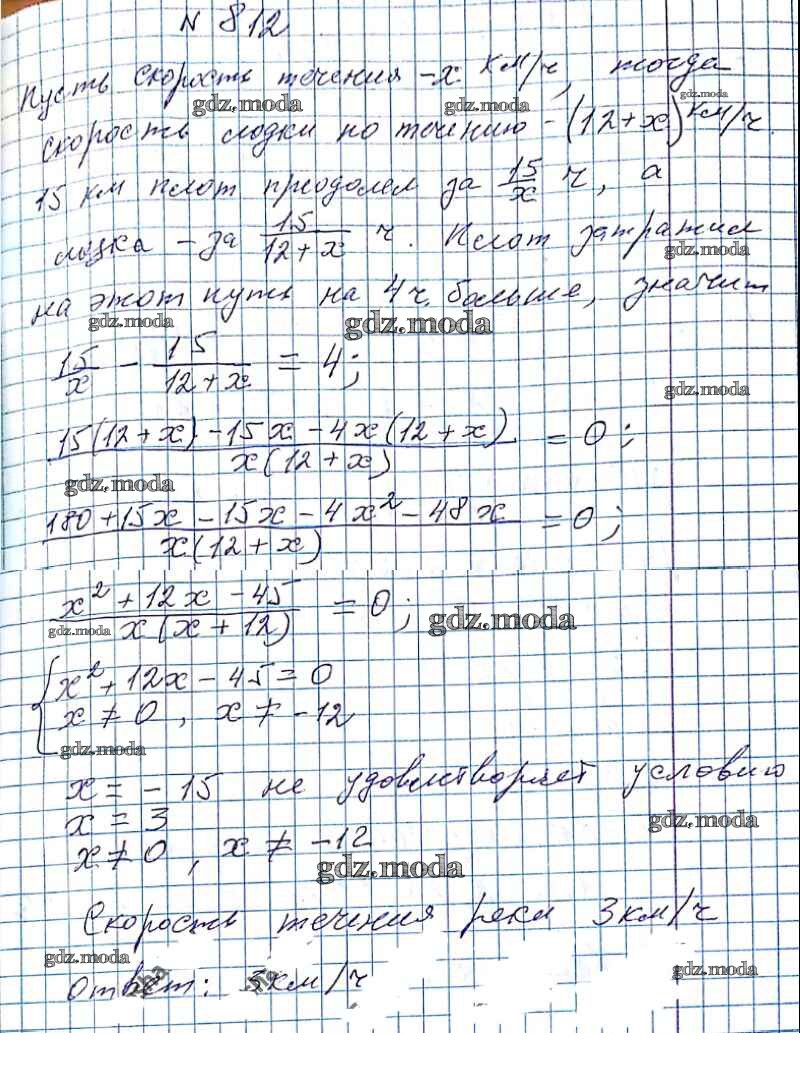 N 812
Пусть скорость течения -x км/ч, тогда
gdz.moda gdz.moda gdz.moda
скорость лодки по течению - (12+x) км/ч.
15 км плот преодолел за 15/x ч, а
лодка - за 15/(12+x) ч. Плот затратил
gdz.moda
на этот путь на 4 ч. больше, значит
gdz.moda gdz.moda
15/x - 15/(12+x) = 4;
gdz.moda
(15(12+x) - 15x - 4x(12+x))/(x(12+x)) = 0;
gdz.moda
(180+15x - 15x - 4x² - 48x)/(x(12+x)) = 0;
(x² + 12x - 45)/(x(x+12)) = 0;
gdz.moda gdz.moda
{x² + 12x - 45 = 0
x ≠ 0, x ≠ -12
gdz.moda
x = - 15 не удовлетворяет условию
x = 3
gdz.moda
x ≠ 0, x ≠ -12
gdz.moda
Скорость течения реки 3 км/ч
gdz.moda gdz.moda
Ответ: 3 км/ч